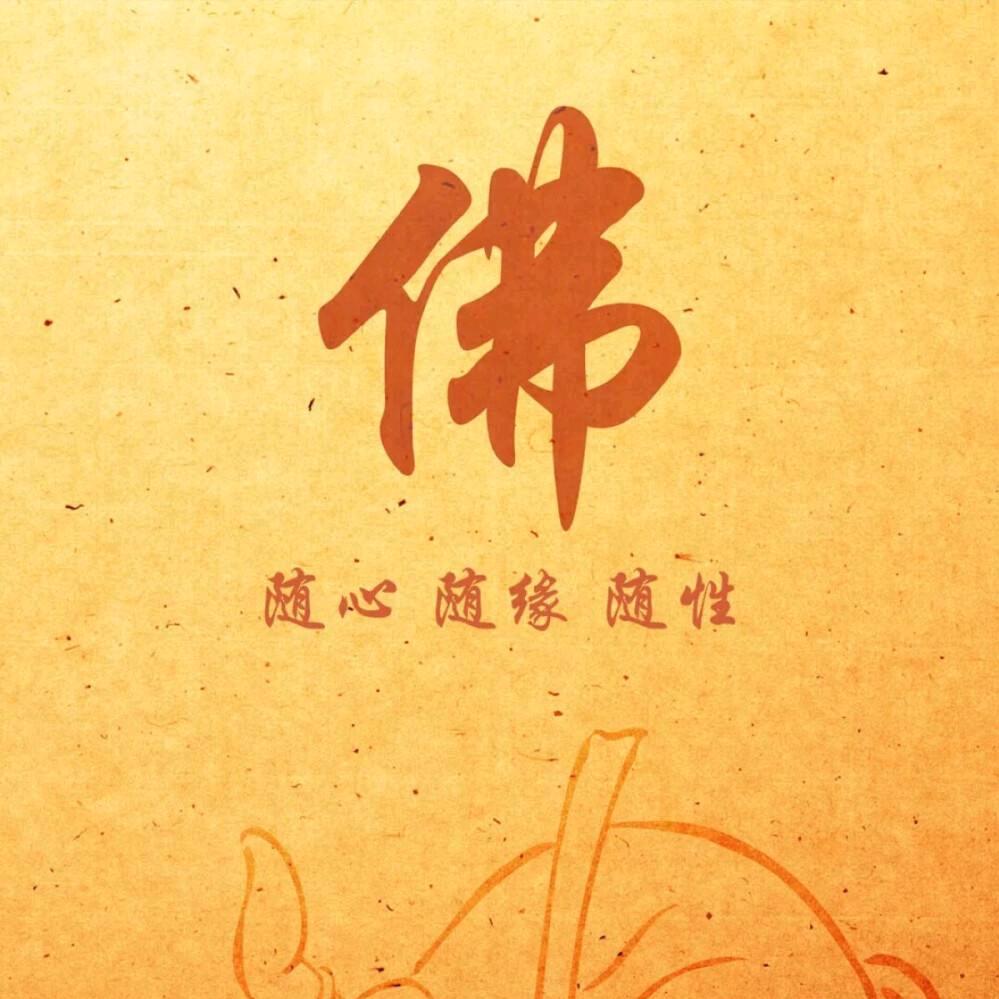 佛
随心 随缘 随性